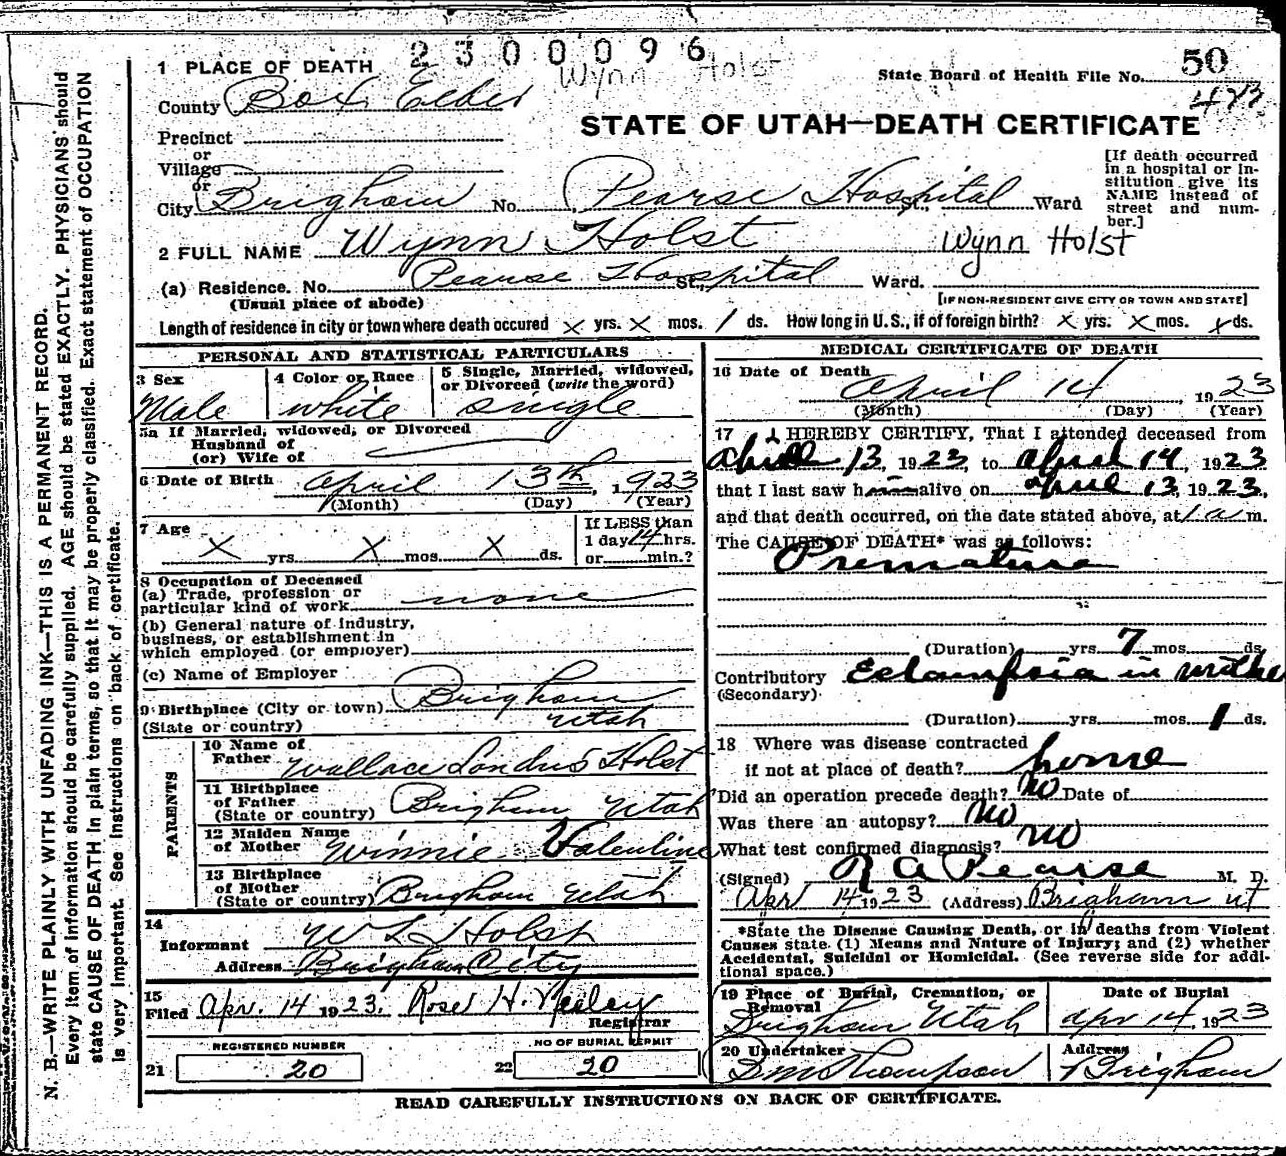 2300096
Wynn Holst
1 PLACE OF DEATH
State Board of Health File No. 50
County Box Elder
423
STATE OF UTAH—DEATH CERTIFICATE
Precinct
or
Village
or
City Brigham No. Pearse Hospital St., Ward
[If death occurred
in a hospital or in-
stitution give its
NAME instead of
street and num-
ber.]
2 FULL NAME Wynn Holst Wynn Holst
(a) Residence. No. Pearse Hospital St., Ward.
(Usual place of abode)
[IF NON-RESIDENT GIVE CITY OR TOWN AND STATE]
Length of residence in city or town where death occured x yrs. x mos. 1 ds. How long in U.S., if of foreign birth? x yrs. x mos. x ds.
PERSONAL AND STATISTICAL PARTICULARS
3 Sex
Male
4 Color or Race
white
5 Single, Married, widowed,
or Divorced (write the word)
single
5a If Married, widowed, or Divorced
Husband of
(or) Wife of
6 Date of Birth April 13th, 1923
(Month) (Day) (Year)
7 Age
X yrs X mos. X ds.
If LESS than
1 day 14 hrs.
or min.?
8 Occupation of Deceased
(a) Trade, profession or
particular kind of work none
(b) General nature of industry,
business, or establishment in
which employed (or employer)
(c) Name of Employer
9 Birthplace (City or town) Brigham
(State or country) Utah
PARENTS
10 Name of
Father Wallace Landus Holst
11 Birthplace
of Father
(State or country) Brigham Utah
12 Maiden Name
of Mother Winnie Valentine
13 Birthplace
of Mother
(State or country) Brigham Utah
14
Informant W L Holst
Address Brigham City
15
Filed Apr. 14 1923. Rose H.
Registrar
REGISTERED NUMBER
21 20
NO OF BURIAL PERMIT
22 20
MEDICAL CERTIFICATE OF DEATH
16 Date of Death
April 14, 1923
(Month) (Day) (Year)
17 I HEREBY CERTIFY, That I attended deceased from
April 13, 1923, to April 14, 1923
that I last saw him alive on April 13, 1923,
and that death occurred, on the date stated above, at 1 a m.
The CAUSE OF DEATH* was as follows:
Premature
(Duration) yrs 7 mos ds
Contributory Eclampsia in mother
(Secondary)
(Duration) yrs. mos. 1 ds.
18 Where was disease contracted
if not at place of death? home
Did an operation precede death? no Date of
Was there an autopsy? no
What test confirmed diagnosis? no
(Signed) R A Pearse M. D.
Apr 14 1923 (Address) Brigham Ut
*State the Disease Causing Death, or in deaths from Violent
Causes state (1) Means and Nature of Injury; and (2) whether
Accidental, Suicidal or Homicidal. (See reverse side for addi-
tional space.)
19 Place of Burial, Cremation, or
Removal
Brigham Utah
Date of Burial
Apr 14, 1923
20 Undertaker
Thompson
Address
Brigham
READ CAREFULLY INSTRUCTIONS ON BACK OF CERTIFICATE.
N. B.—WRITE PLAINLY WITH UNFADING INK—THIS IS A PERMANENT RECORD.
Every item of information should be carefully supplied. AGE should be stated EXACTLY. PHYSICIANS should
state CAUSE OF DEATH in plain terms, so that it may be properly classified. Exact statement of OCCUPATION
is very important. See instructions on back of certificate.